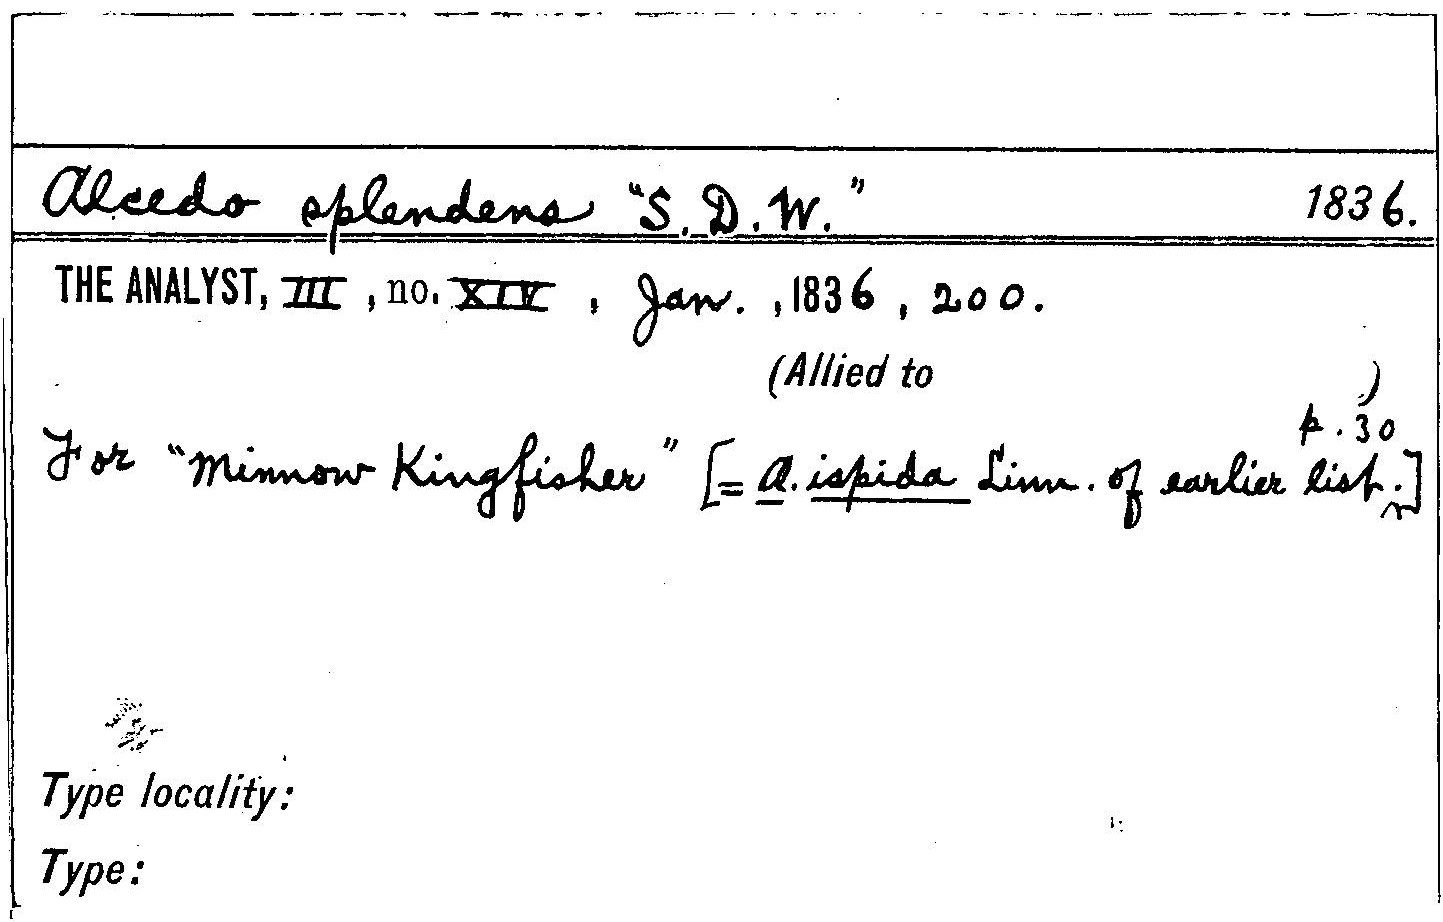 Alcedo splendens "S.D.W." 1836.
THE ANALYST, III, no. XIV, Jan., 1836, 200.
(Allied to )
p. 30
For "Minnow Kingfisher" [= A. ispida Linn. of earlier list.]
Type locality:
Type: